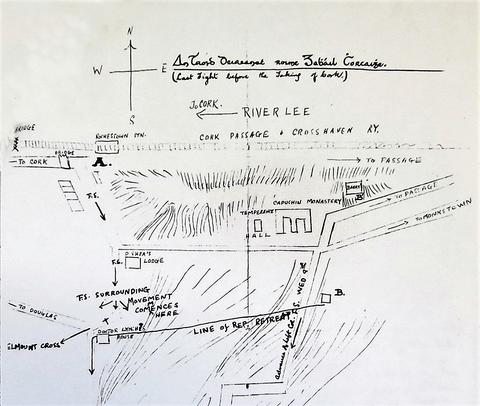 N
W
E
S
An Troid Deireanach roimh Gabháil Corcaighe.
(Last Fight before the Taking of Cork.)
To CORK.
RIVER LEE
CORK PASSAGE & CROSSHAVEN RY.
BRIDGE
ROHESTOWN STN.
TO CORK
BRIDGE
A.
TO PASSAGE
F.S.
CAPUCHIN MONASTERY
B
TO PASSAGE
TEMPERENCE
HALL
TO MONKSTOWN
O'SHEA'S
LODGE
F.S.
F.S. SURROUNDING
MOVEMENT
COMENCES
HERE
TO DOUGLAS
B.
LINE OF REP. RETREAT
DOCTOR LYNCH'S
HOUSE
ELMOUNT CROSS
F.S. WED 9TH